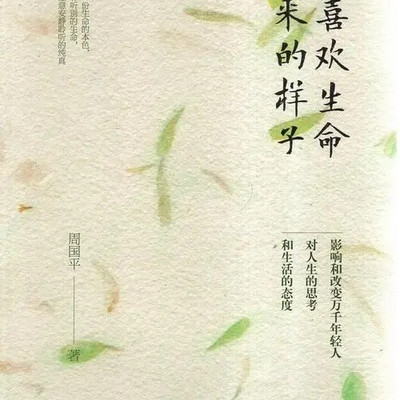 喜欢生命
来的样子
影响和改变万千年轻人
对人生的思考
和生活的态度
份生命的本色，
听别的生命，
意安静聆听的纯真
周国平
著